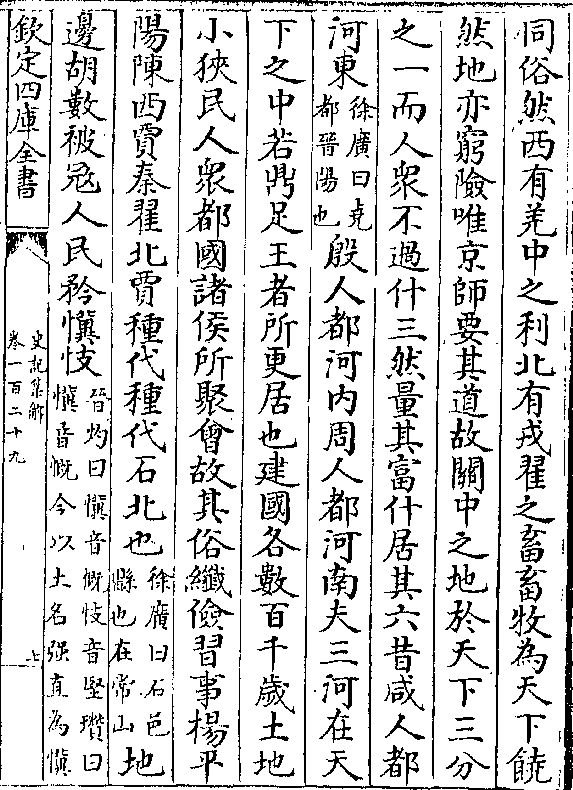 同俗然西有羌中之利北有戎翟之畜畜牧為天下饒
然地亦窮險唯京師要其道故關中之地於天下三分
之一而人衆不過什三然量其富什居其六昔咸人都
河東
徐廣曰堯
都晉陽也
殷人都河内周人都河南夫三河在天
下之中若鼎足王者所更居也建國各數百千歲土地
小狹民人衆都國諸侯所聚會故其俗纖儉習事楊平
陽陳西賈秦翟北賈種代種代石北也
徐廣曰石邑
縣也在常山
地
邊胡數被冦人民矜懻忮
晉灼曰懻音慨忮音堅瓚曰
懻音慨今以土名强直為懻
欽定四庫全書
史記集解
卷一百二十九
七